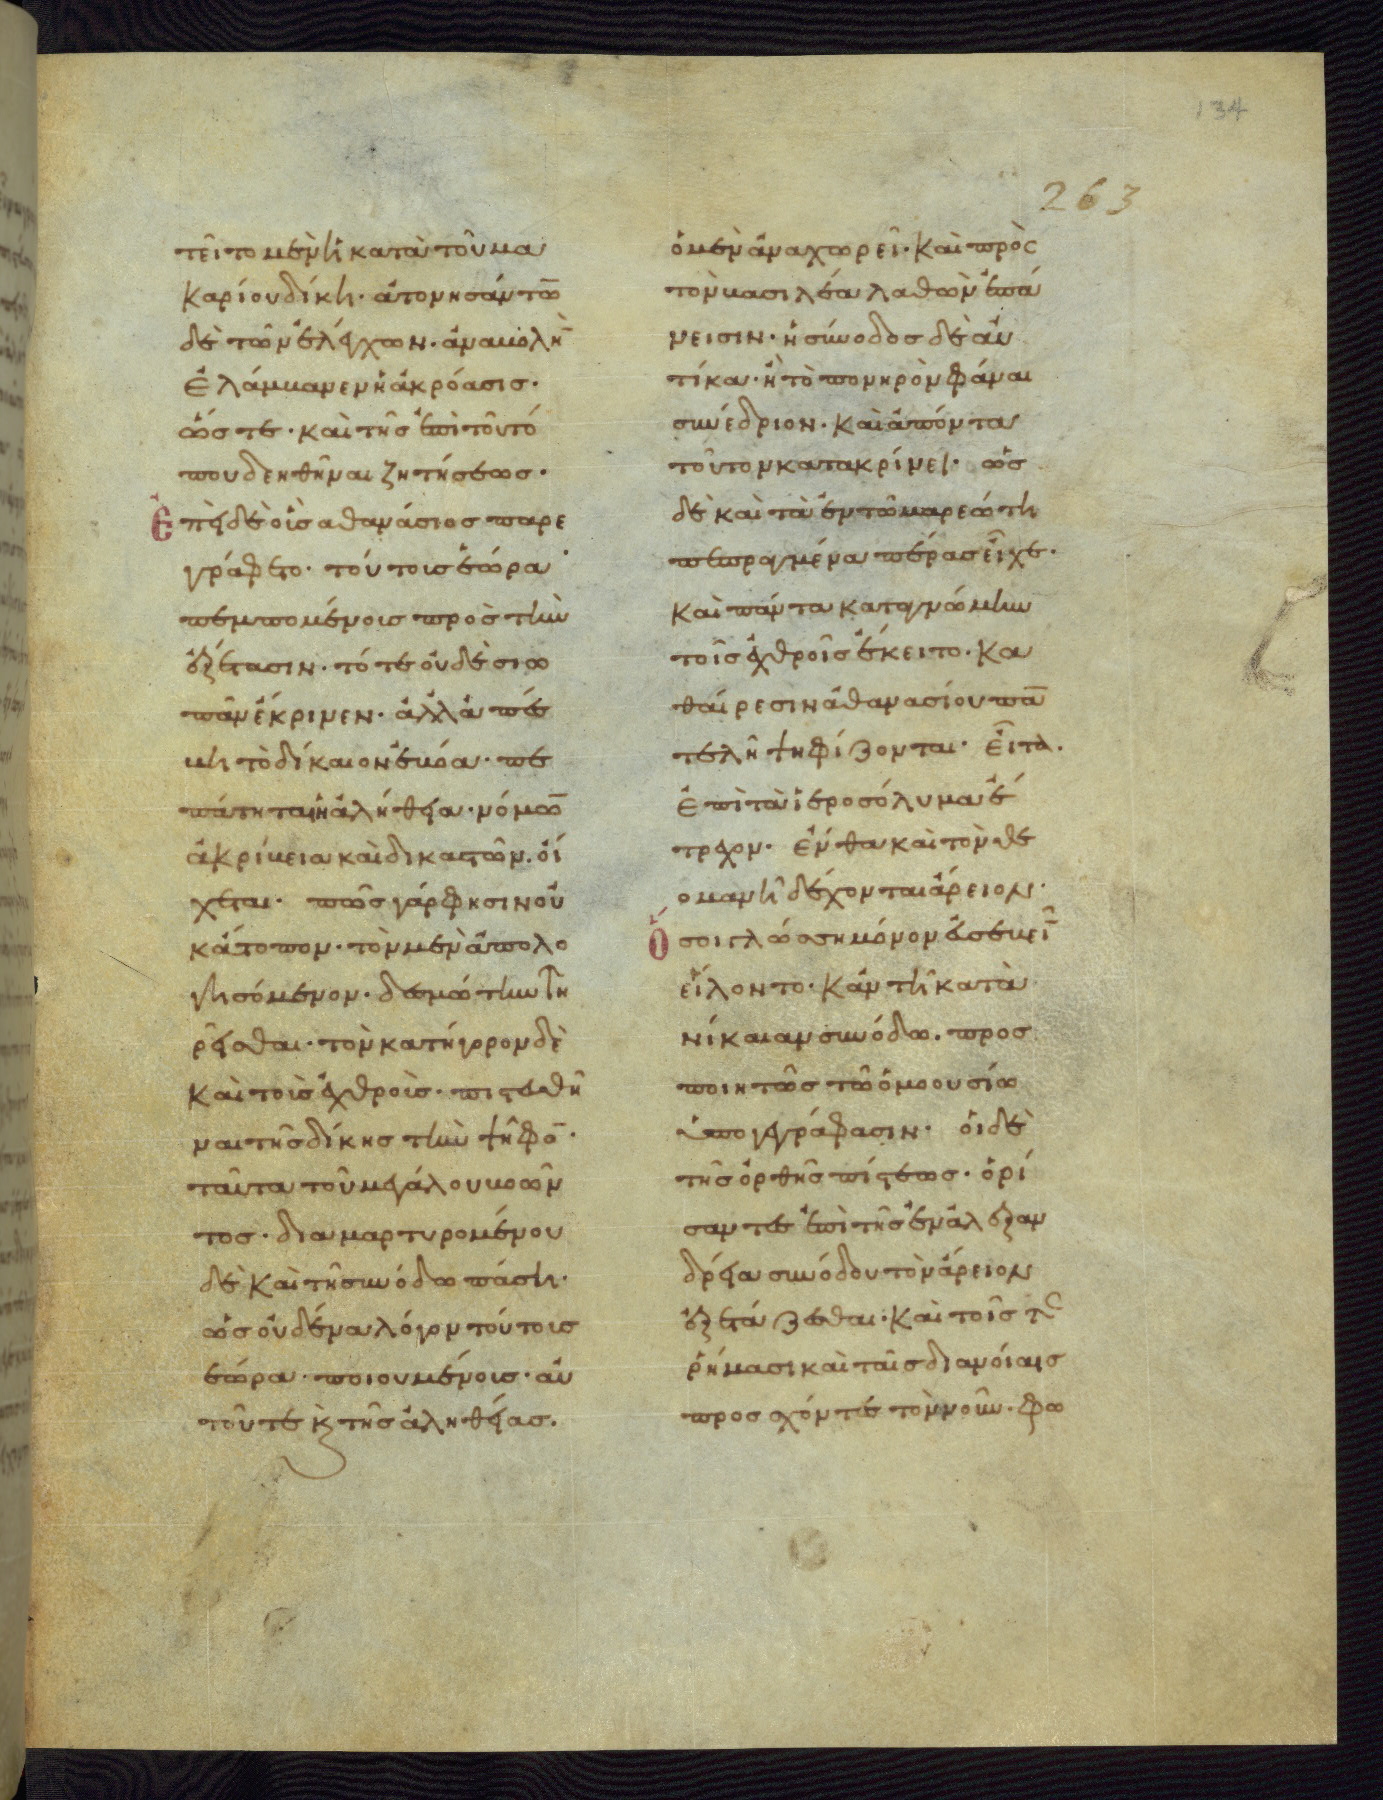 134
263
τεῖτο μὲν ἡ κατὰ τοῦ μα
καρίου δίκη· ἀτονησάντω̅
δὲ τῶν ἐλέγχων· ἀναβολὴ̅
ἐλάμβανεν ἡ ἀκρόασις·
ὥστε· καὶ τῆς ἐπὶ τοῦ τό
που δεηθῆναι ζητήσεως·
ἐπεὶ δὲ οἷς ἀθανάσιος παρε
γράφετο· τούτοις ἑώρα
πεμπομένοις πρὸς τὴν
ἐξέτασιν· τότε οὐδὲ σιω
πᾶν ἔκρινεν· ἀλλὰ πέ
βη τὸ δίκαιον ἐβόα· πε
πάτηται ἡ ἀλήθεια· νόμω̅
ἀκρίβεια καὶ δικαστῶν. οἴ
χεται· πῶς γάρ φησιν οὐ
κ ἄτοπον· τὸν μὲν ἀπολο
γησόμενον· δεσμώτην τη
ρεῖσθαι· τὸν κατήγορον δὲ
καὶ τοῖς ἐχθροῖς· πιστευθῆ
ναι τῆς δίκης τὴν ψῆφο̅·
ταῦτα τοῦ μεγάλου βοῶν
τος· διαμαρτυρομένου
δὲ καὶ τῇ συνόδω πάσῃ·
ὡς οὐδένα λόγον τούτοις
ἑώρα· ποιουμένοις· αὐ
τοῦ τε κ̀ τῆς ἀληθείας.
ὁ μὲν ἀναχωρεῖ· καὶ πρὸς
τὸν βασιλέα λαθὼν ἐπά
νεισιν· ἡ σύνοδος δὲ αὐ
τίκα· ἢ τὸ πονηρὸν φάναι
συνέδριον· καὶ ἀπόντα
τοῦτον κατακρίνει· ὡς
δὲ καὶ τὰ ἐν τῶ μαρεώτη
πεπραγμένα πέρας εἶχε·
καὶ πάντα κατὰ γνώμην
τοῖς ἐχθροῖς ἔκειτο· κα
θαίρεσιν ἀθανασίου πα̅
τελῆ ψηφίζονται· εἶτα.
ἐπὶ τὰ ἱεροσόλυμα ἔ
τρεχον· ἔνθα καὶ τὸν θε
ομανῆ δέχονται ἄρειον·
ὅσοι γλώσση μόνον εὐσεβεῖ̅
εἵλοντο· κἀν τῆ κατὰ
νίκαιαν συνόδω. προς
ποιητῶς τῶ ὁμοουσίω
ὑπογεγράφασιν· οἱ δὲ
τῆς ὀρθῆς πίστεως· ὁρί
σαντες ἐπὶ τῆς ἐν ἀλεξαν
δρεία συνόδου τὸν ἄρειον
ἐξετάζεσθαι· καὶ τοῖς τε
ῥήμασι καὶ ταῖς διανοίαις
προσσχόντες τὸν νοῦν· φω